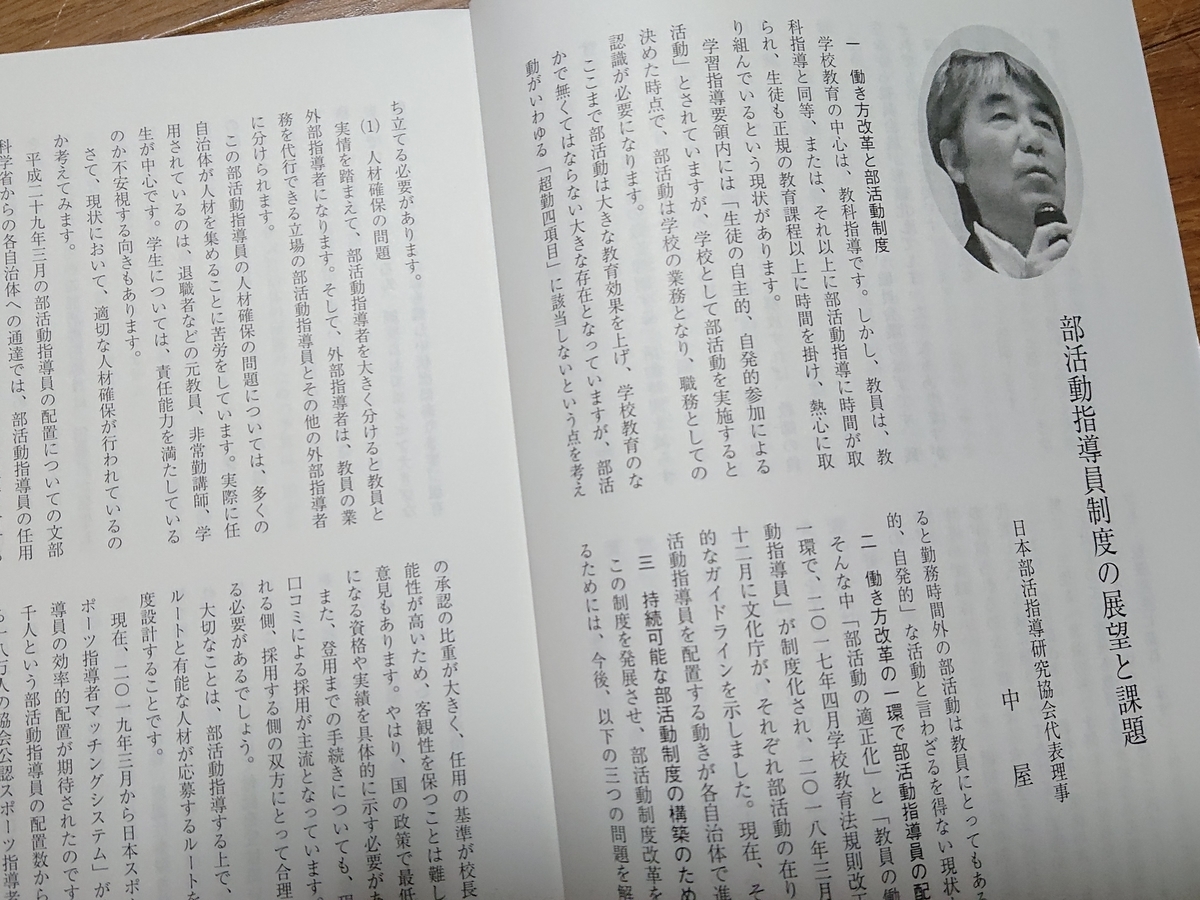 部活動指導員制度の展望と課題
日本部活指導研究協会代表理事
中屋
一 働き方改革と部活動制度
学校教育の中心は、教科指導です。しかし、教員は、教
科指導と同等、または、それ以上に部活動指導に時間が取
られ、生徒も正規の教育課程以上に時間を掛け、熱心に取
り組んでいるという現状があります。
学習指導要領内には「生徒の自主的、自発的参加による
活動」とされていますが、学校として部活動を実施すると
決めた時点で、部活動は学校の業務となり、職務としての
認識が必要になります。
ここまで部活動は大きな教育効果を上げ、学校教育のな
かで無くてはならない大きな存在となっていますが、部活
動がいわゆる「超勤四項目」に該当しないという点を考え
ると勤務時間外の部活動は教員にとってもある
的、自発的」な活動と言わざるを得ない現状
二 働き方改革の一環で部活動指導員の配
そんな中「部活動の適正化」と「教員の働
一環で、二〇一七年四月学校教育法規則改正
動指導員」が制度化され、二〇一八年三月
十二月に文化庁が、それぞれ部活動の在り
的なガイドラインを示しました。現在、そ
活動指導員を配置する動きが各自治体で進
三 持続可能な部活動制度の構築のため
この制度を発展させ、部活動制度改革を
るためには、今後、以下の三つの問題を解
ち立てる必要があります。
⑴ 人材確保の問題
実情を踏まえて、部活動指導者を大きく分けると教員と
外部指導者になります。そして、外部指導者は、教員の業
務を代行できる立場の部活動指導員とその他の外部指導者
に分けられます。
この部活動指導員の人材確保の問題については、多くの
自治体が人材を集めることに苦労をしています。実際に任
用されているのは、退職者などの元教員、非常勤講師、学
生が中心です。学生については、責任能力を満たしている
のか不安視する向きもあります。
さて、現状において、適切な人材確保が行われているの
か考えてみます。
平成二十九年三月の部活動指導員の配置についての文部
科学省からの各自治体への通達では、部活動指導員の任用
の承認の比重が大きく、任用の基準が校長
能性が高いため、客観性を保つことは難し
意見もあります。やはり、国の政策で最低
になる資格や実績を具体的に示す必要があ
また、登用までの手続きについても、現
口コミによる採用が主流となっています。
れる側、採用する側の双方にとって合理
る必要があるでしょう。
大切なことは、部活動指導する上で、
ルートと有能な人材が応募するルートを
度設計することです。
現在、二〇一九年三月から日本スポ
ポーツ指導者マッチングシステム」が
導員の効率的配置が期待されたのです
千人という部活動指導員の配置数から
八万人の協会公認スポーツ指導者